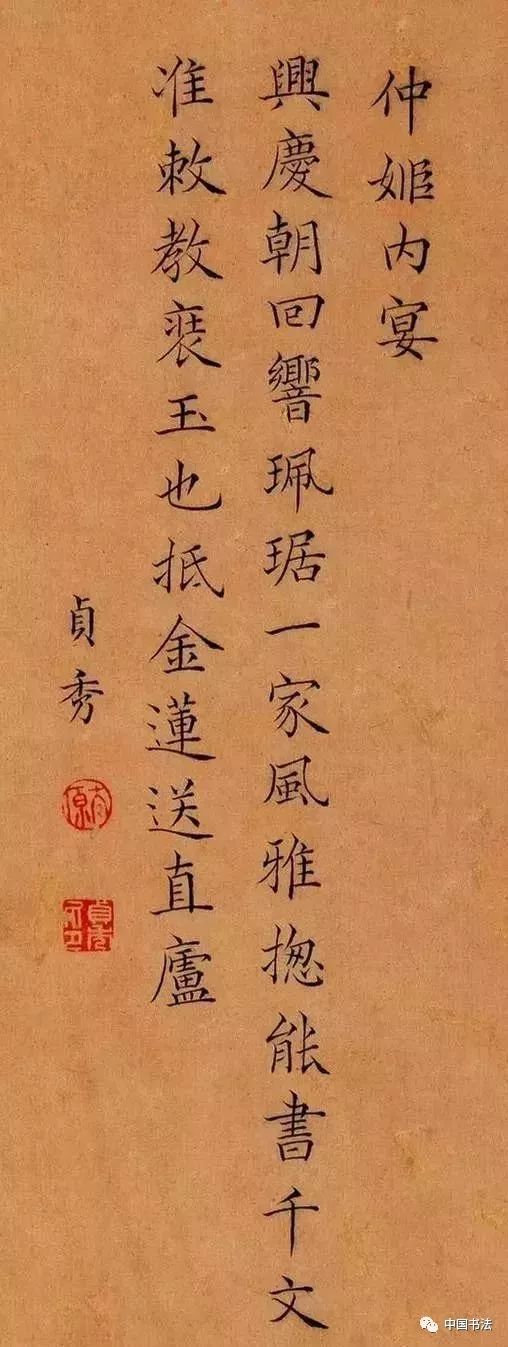 仲姬内宴
興慶朝回響珮琚一家風雅揔能書千文
准敕教裝玉也抵金蓮送直廬
貞秀
中国书法